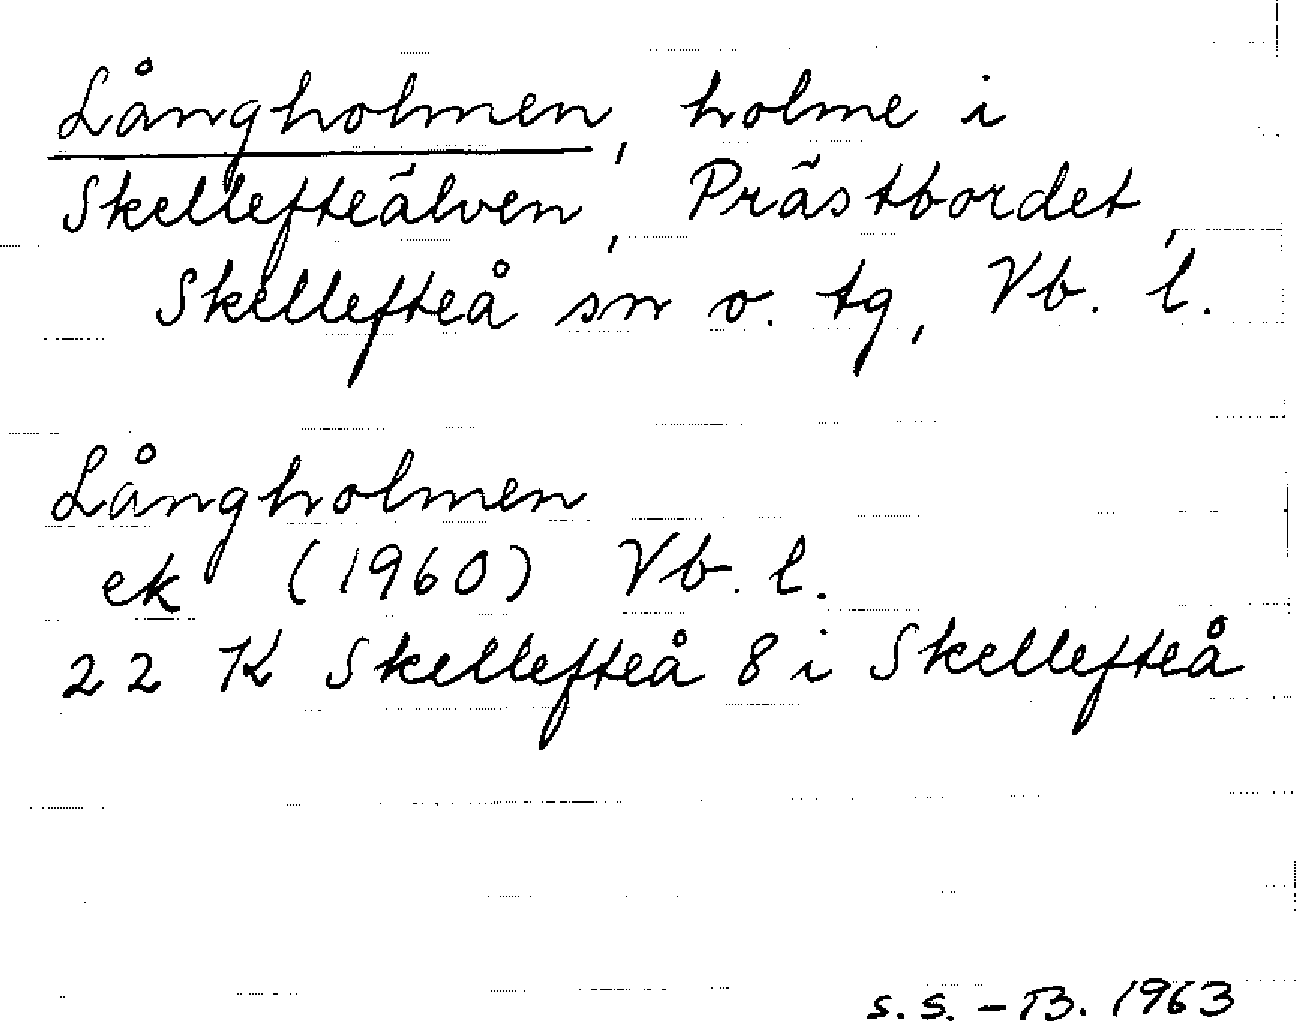 Långholmen, holme i
Skellefteälven, Prästbordet,
Skellefteå sn o. tg, Vb. l.
Långholmen
ek (1960) Vb. l.
22 K Skellefteå 8 i Skellefteå
S. S. – B. 1963